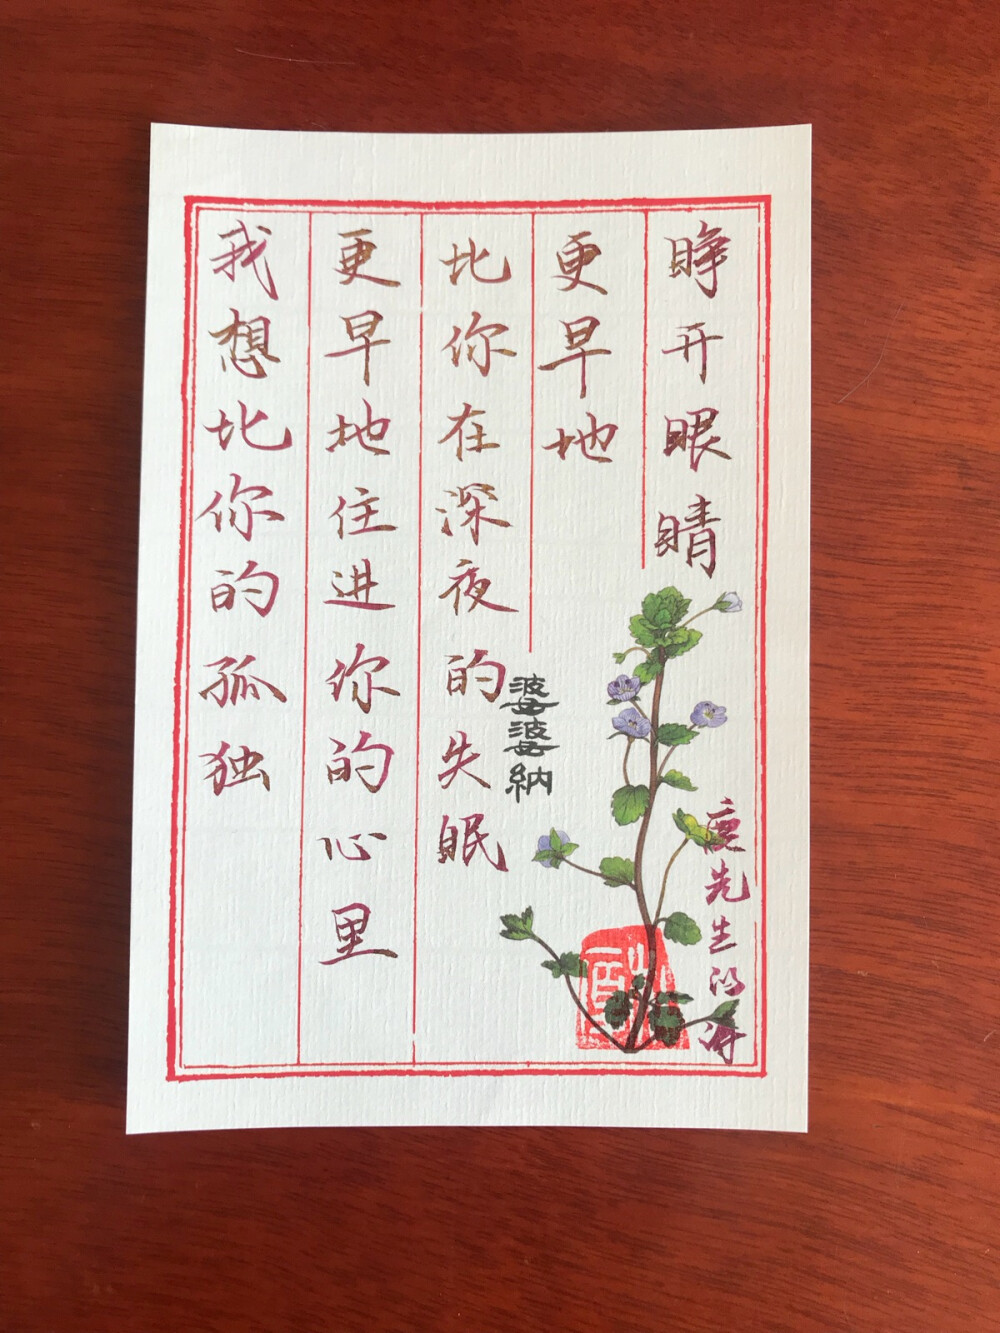 我想比你的孤独
更早地住进你的心里
比你在深夜的失眠
更早地
睁开眼睛
婆婆納
鹿先生的诗